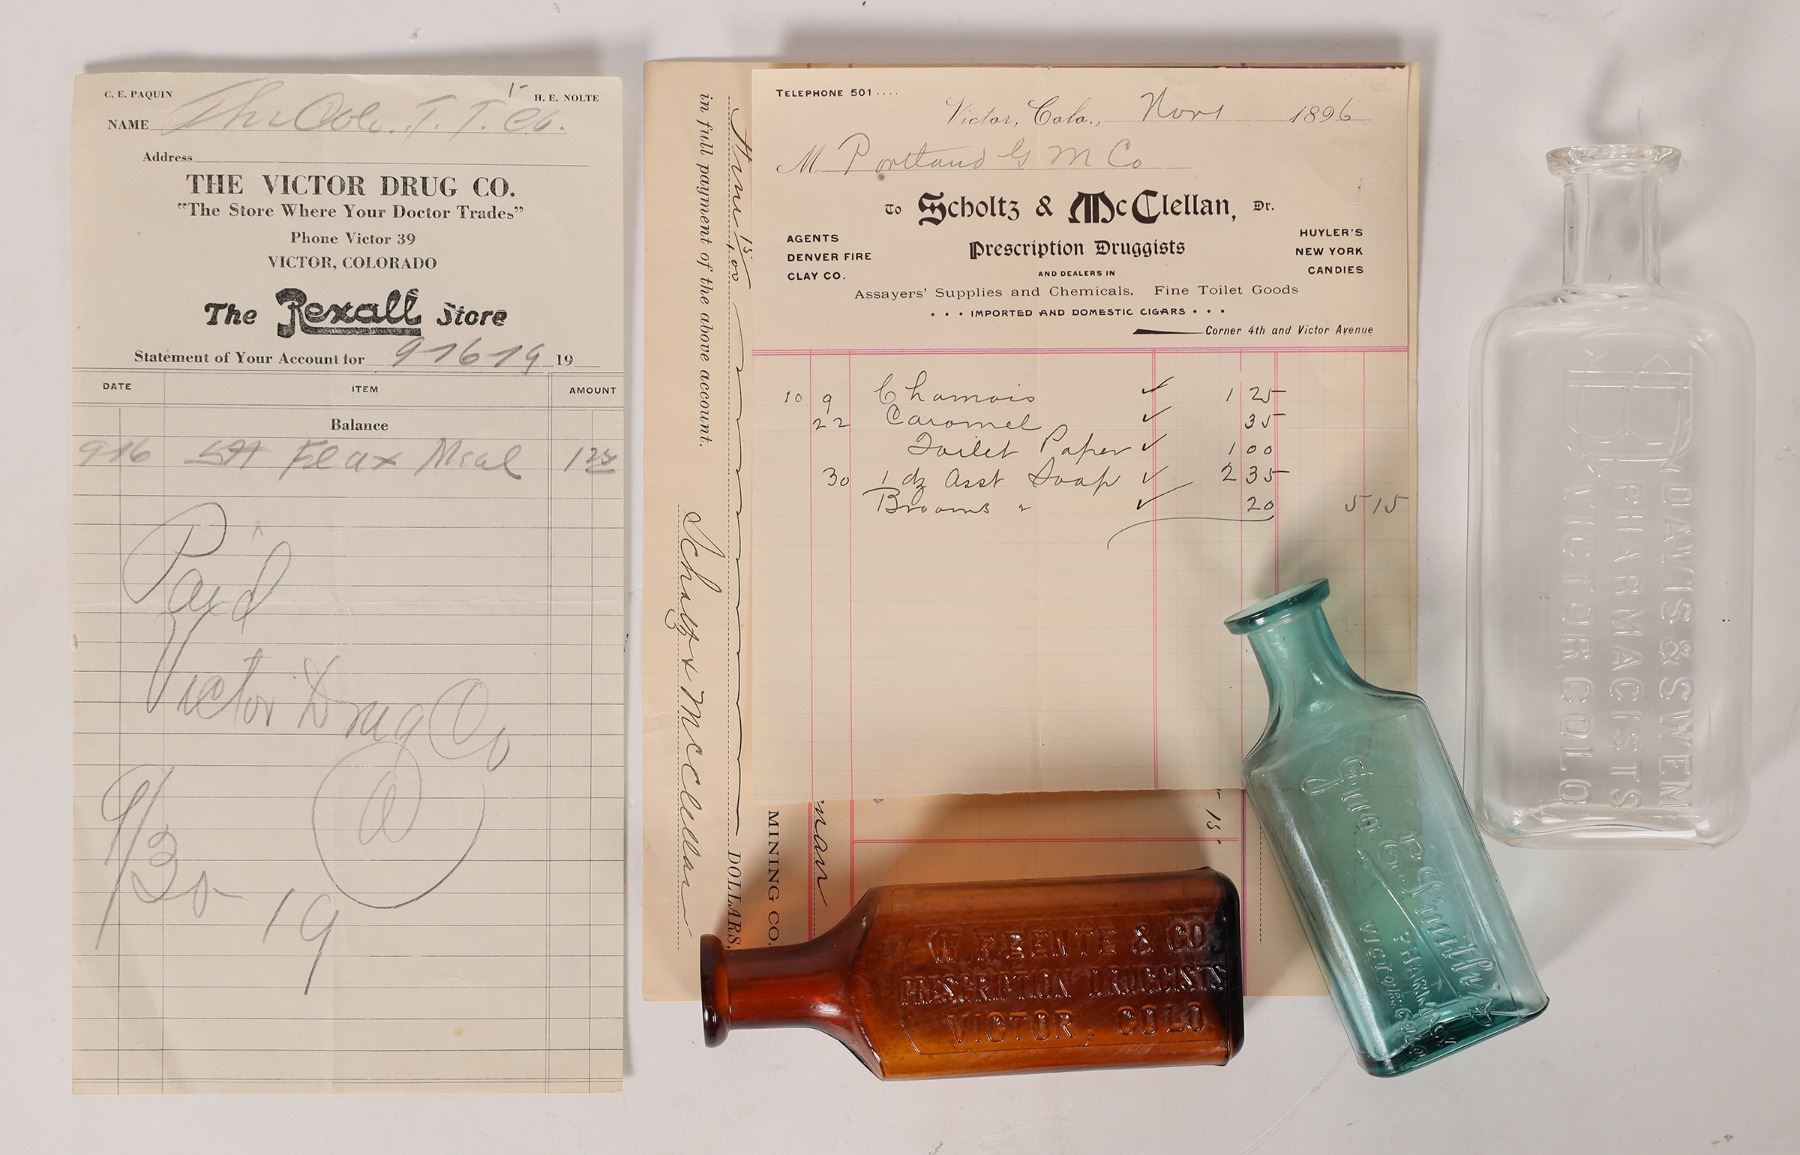 C. E. PAQUIN
1-
H. E. NOLTE
NAME The Colo. T. T. Co.
Address
THE VICTOR DRUG CO.
"The Store Where Your Doctor Trades"
Phone Victor 39
VICTOR, COLORADO
The Rexall Store
Statement of Your Account for 9-16-19 19
DATE ITEM AMOUNT
Balance
916 Flax Meal 1 25
Paid
Victor Drug Co
9/30 19
in full payment of the above account.
15/100
DOLLARS.
Scholtz & McClellan
MINING CO.
man
15
TELEPHONE 501 ....
Victor, Colo., Nov 1 1896
M Portland G M Co
To Scholtz & McClellan, Dr.
Prescription Druggists
AGENTS
DENVER FIRE
CLAY CO.
HUYLER'S
NEW YORK
CANDIES
AND DEALERS IN
Assayers' Supplies and Chemicals. Fine Toilet Goods
• • • IMPORTED AND DOMESTIC CIGARS • • •
Corner 4th and Victor Avenue
10 9 Chamois ✓ 1 25
22 Caromel ✓ 35
Toilet Paper ✓ 1 00
30 1 dz Asst Soap ✓ 2 35
Brooms " ✓ 20 5 15
W. F. BENTE & CO.
PRESCRIPTION DRUGGISTS
VICTOR, COLO.
Geo. E. Smith
PHARMACY
VICTOR, COLO.
DAVIS & SWEM
PHARMACISTS
VICTOR, COLO.